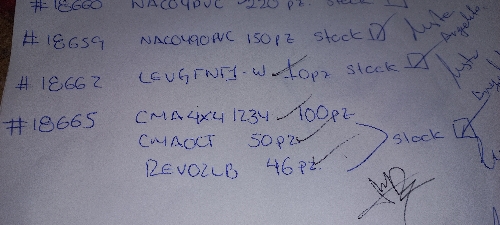 #18660 NACO4PVC 220 pz. stock
#18659 NACO490PVC 150pz stock Liste Angelika
#18662 LEVGFNT1-W 10pz stock Liste
#18665 CMA4x4 1234 100pz
CMAOCT 50pz stock
REVO2LB 46pz